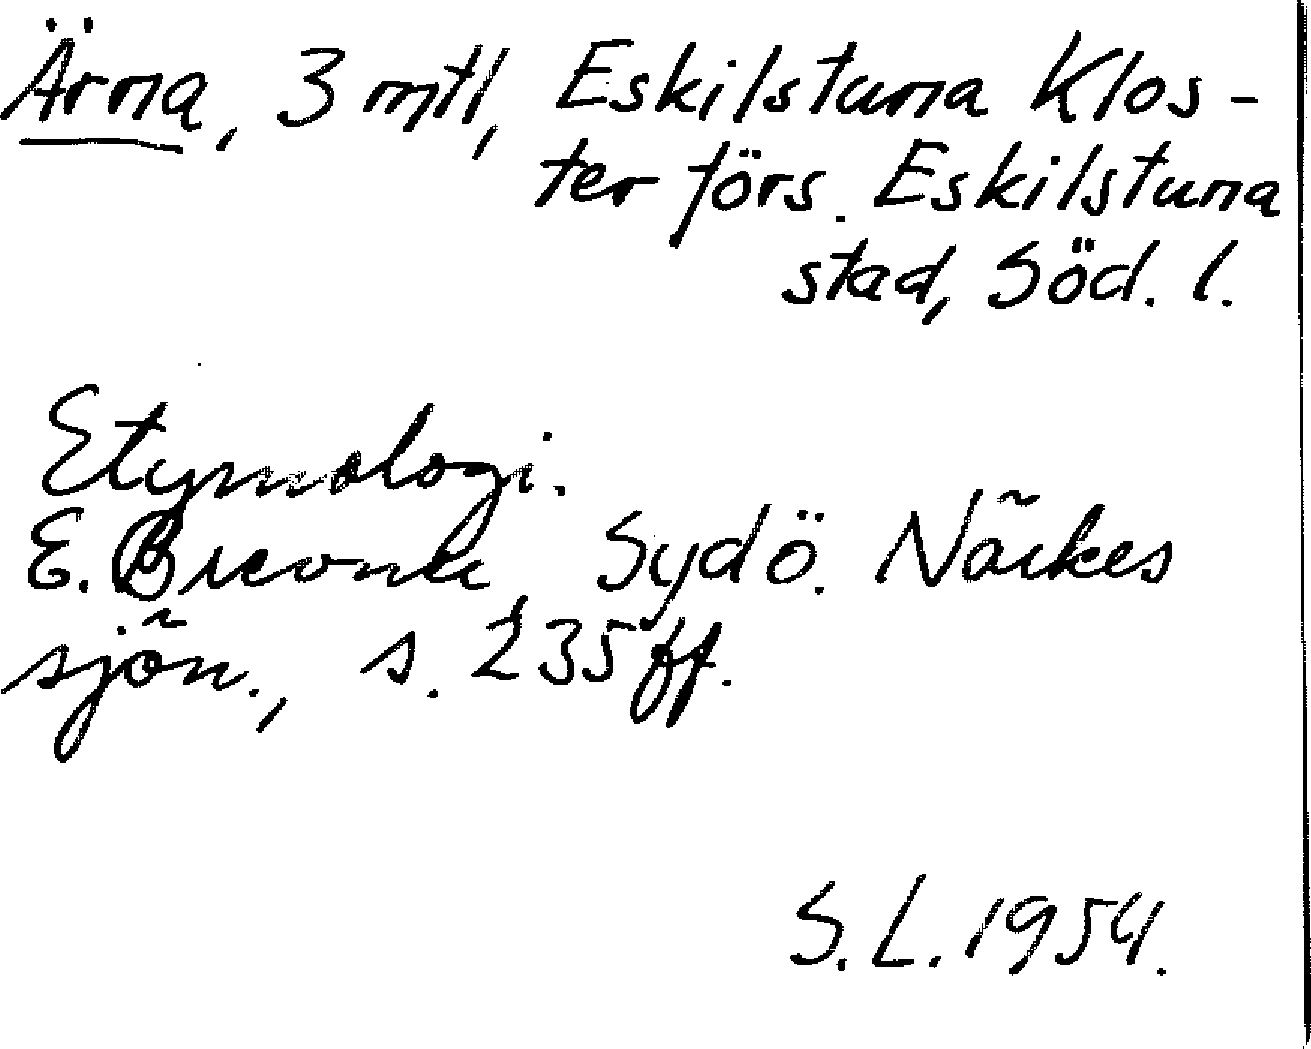 Ärna, 3 mtl, Eskilstuna Klos-
ter förs. Eskilstuna
stad, Söd. l.
Etymologi.
E. Brevner Sydö. Närkes
sjön., s. 235 ff.
S. L. 1954.